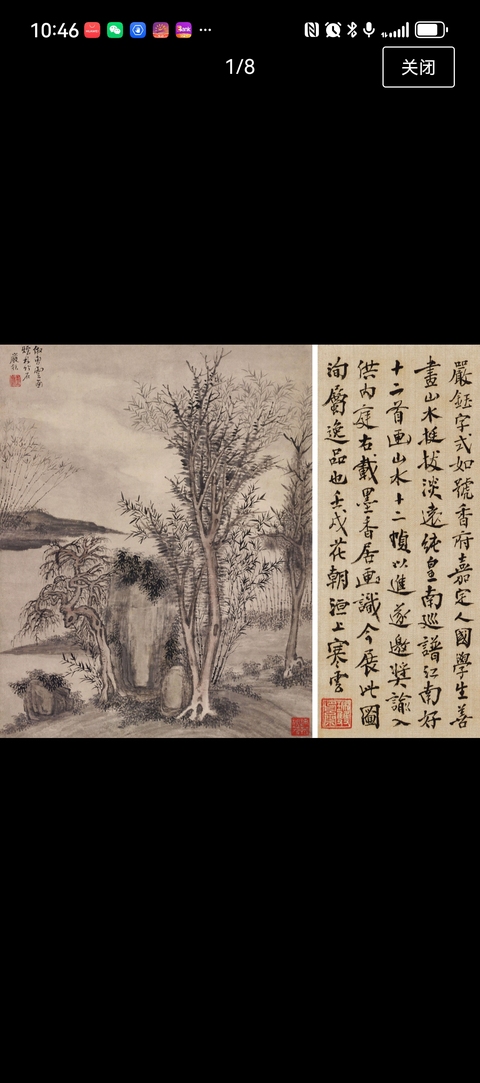 10:46
1/8
关闭
嚴鈺字式如號香府嘉定人國學生善
畫山水挺拔淡遠純皇南巡譜江南好
十二首画山水十二幀以進遂邀獎諭入
供內庭右載墨香居画識今展此圖
洵屬逸品也壬戌花朝洹上寒雲